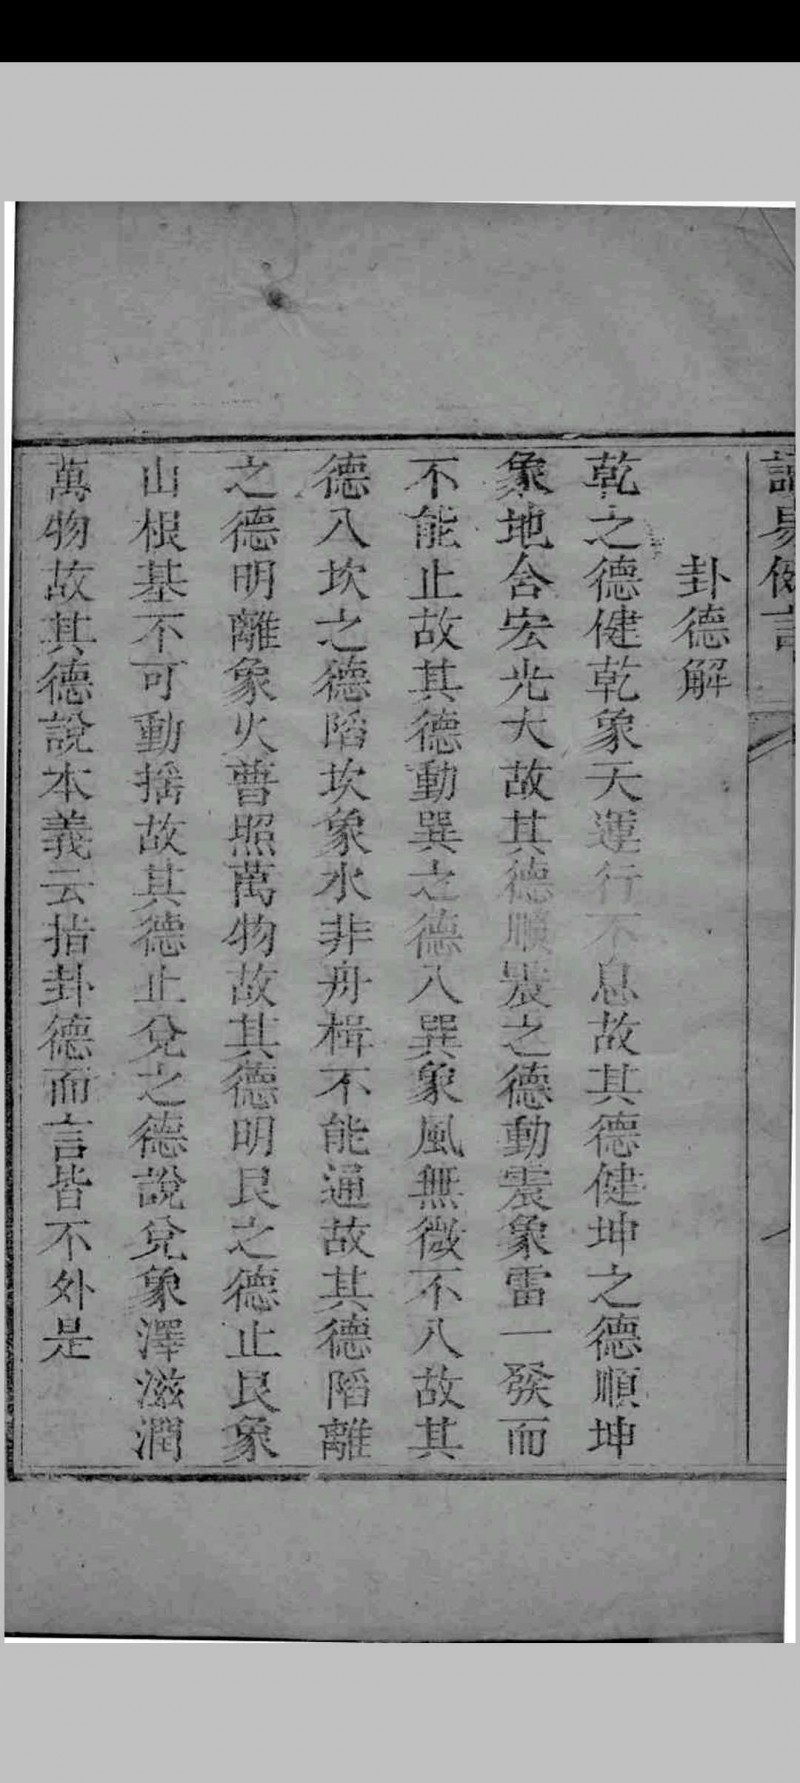 易
卦德解
乾之德健乾象天運行不息故其德健坤之德順坤
象地含宏光大故其德順震之德動震象雷一發而
不能止故其德動巽之德入巽象風無微不入故其
德入坎之德陷坎象水非舟楫不能通故其德陷離
之德明離象火普照萬物故其德明艮之德止艮象
山根基不可動搖故其德止兌之德說兌象澤滋潤
萬物故其德說本義云指卦德而言皆不外是